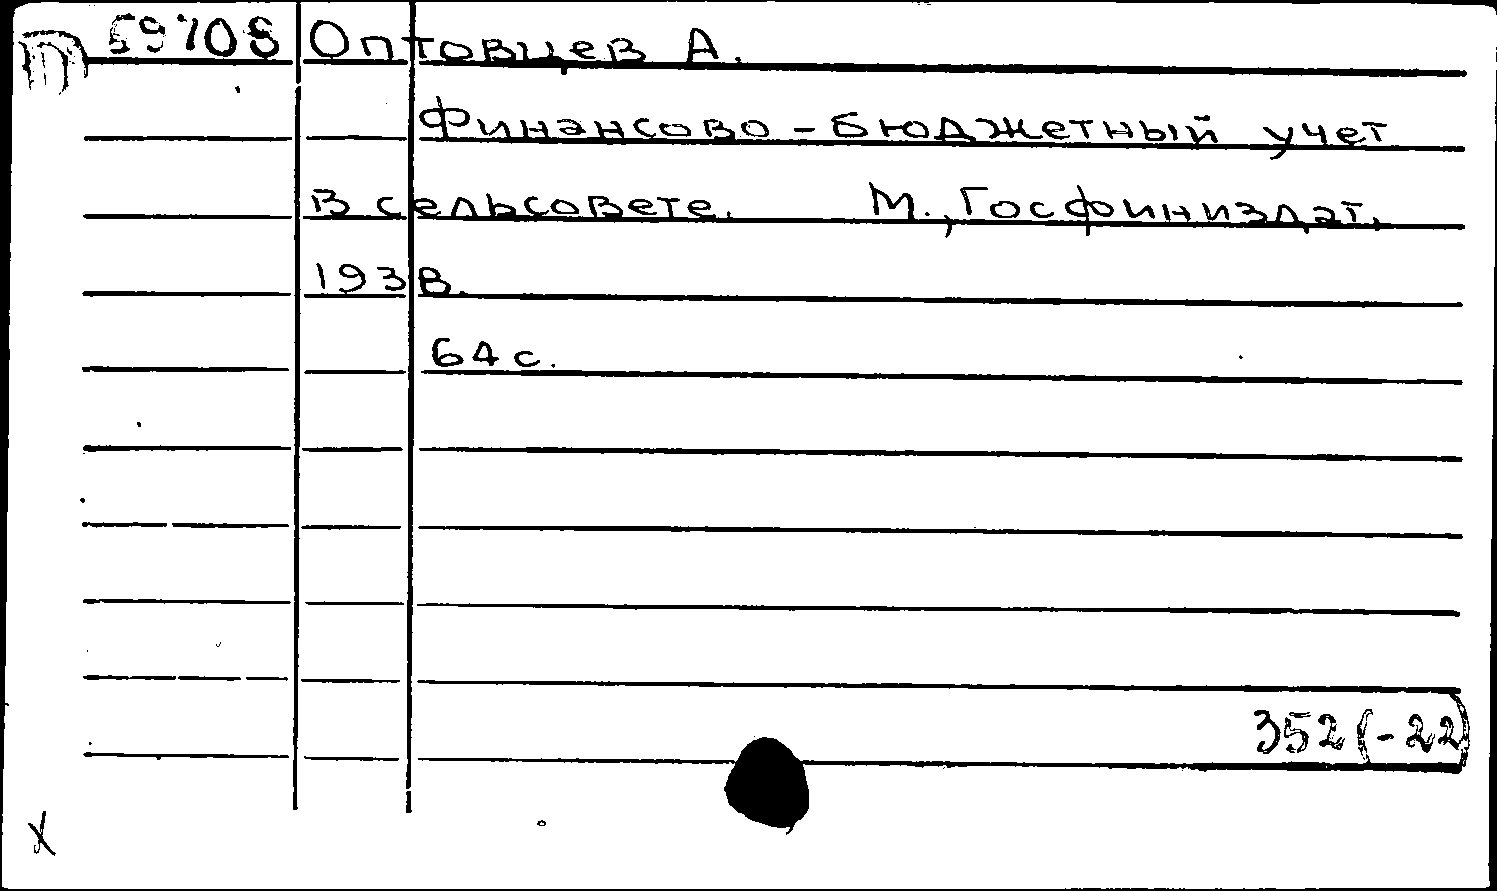 П 59708 Оптовцев А.
Финансово-бюджетный учет
в сельсовете. М., Госфиниздат,
1938.
64 с.
352(-22)
X